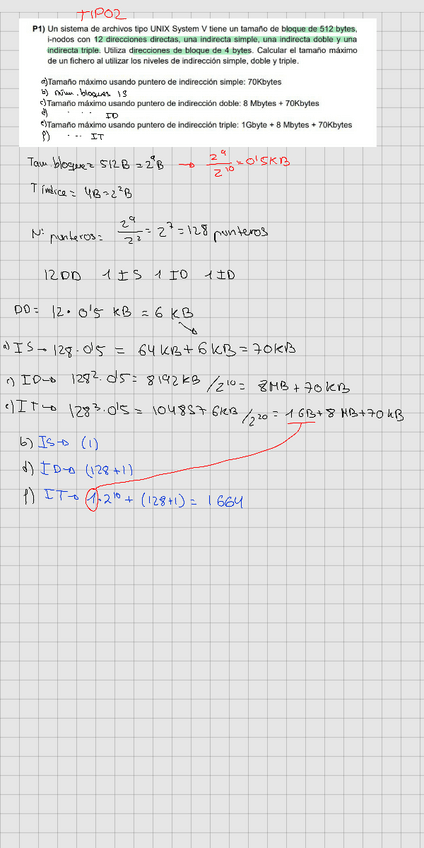 TIPO2
P1) Un sistema de archivos tipo UNIX System V tiene un tamaño de bloque de 512 bytes,
i-nodos con 12 direcciones directas, una indirecta simple, una indirecta doble y una
indirecta triple. Utiliza direcciones de bloque de 4 bytes. Calcular el tamaño máximo
de un fichero al utilizar los niveles de indirección simple, doble y triple.
a)Tamaño máximo usando puntero de indirección simple: 70Kbytes
b) Núm. bloques IS
c)Tamaño máximo usando puntero de indirección doble: 8 Mbytes + 70Kbytes
d) .. .. ID
e)Tamaño máximo usando puntero de indirección triple: 1Gbyte + 8 Mbytes + 70Kbytes
f) .. .. IT
Tam bloque = 512B = 2⁹B → 2⁹/2¹⁰ = 0'5KB
T índice = 4B = 2²B
Nº punteros: 2⁹/2² = 2⁷ = 128 punteros
12DD 1 IS 1 ID 1 ID
DD = 12 · 0'5 KB = 6 KB
a) IS → 128·0'5 = 64KB + 6KB = 70KB
c) ID → 128²·0'5 = 8192KB /2¹⁰ = 8MB + 70KB
e) IT → 128³·0'5 = 1048576KB /2²⁰ = 1GB + 8MB + 70KB
b) IS → (1)
d) ID → (128+1)
f) IT → 1·2¹⁰ + (128+1) = 1664